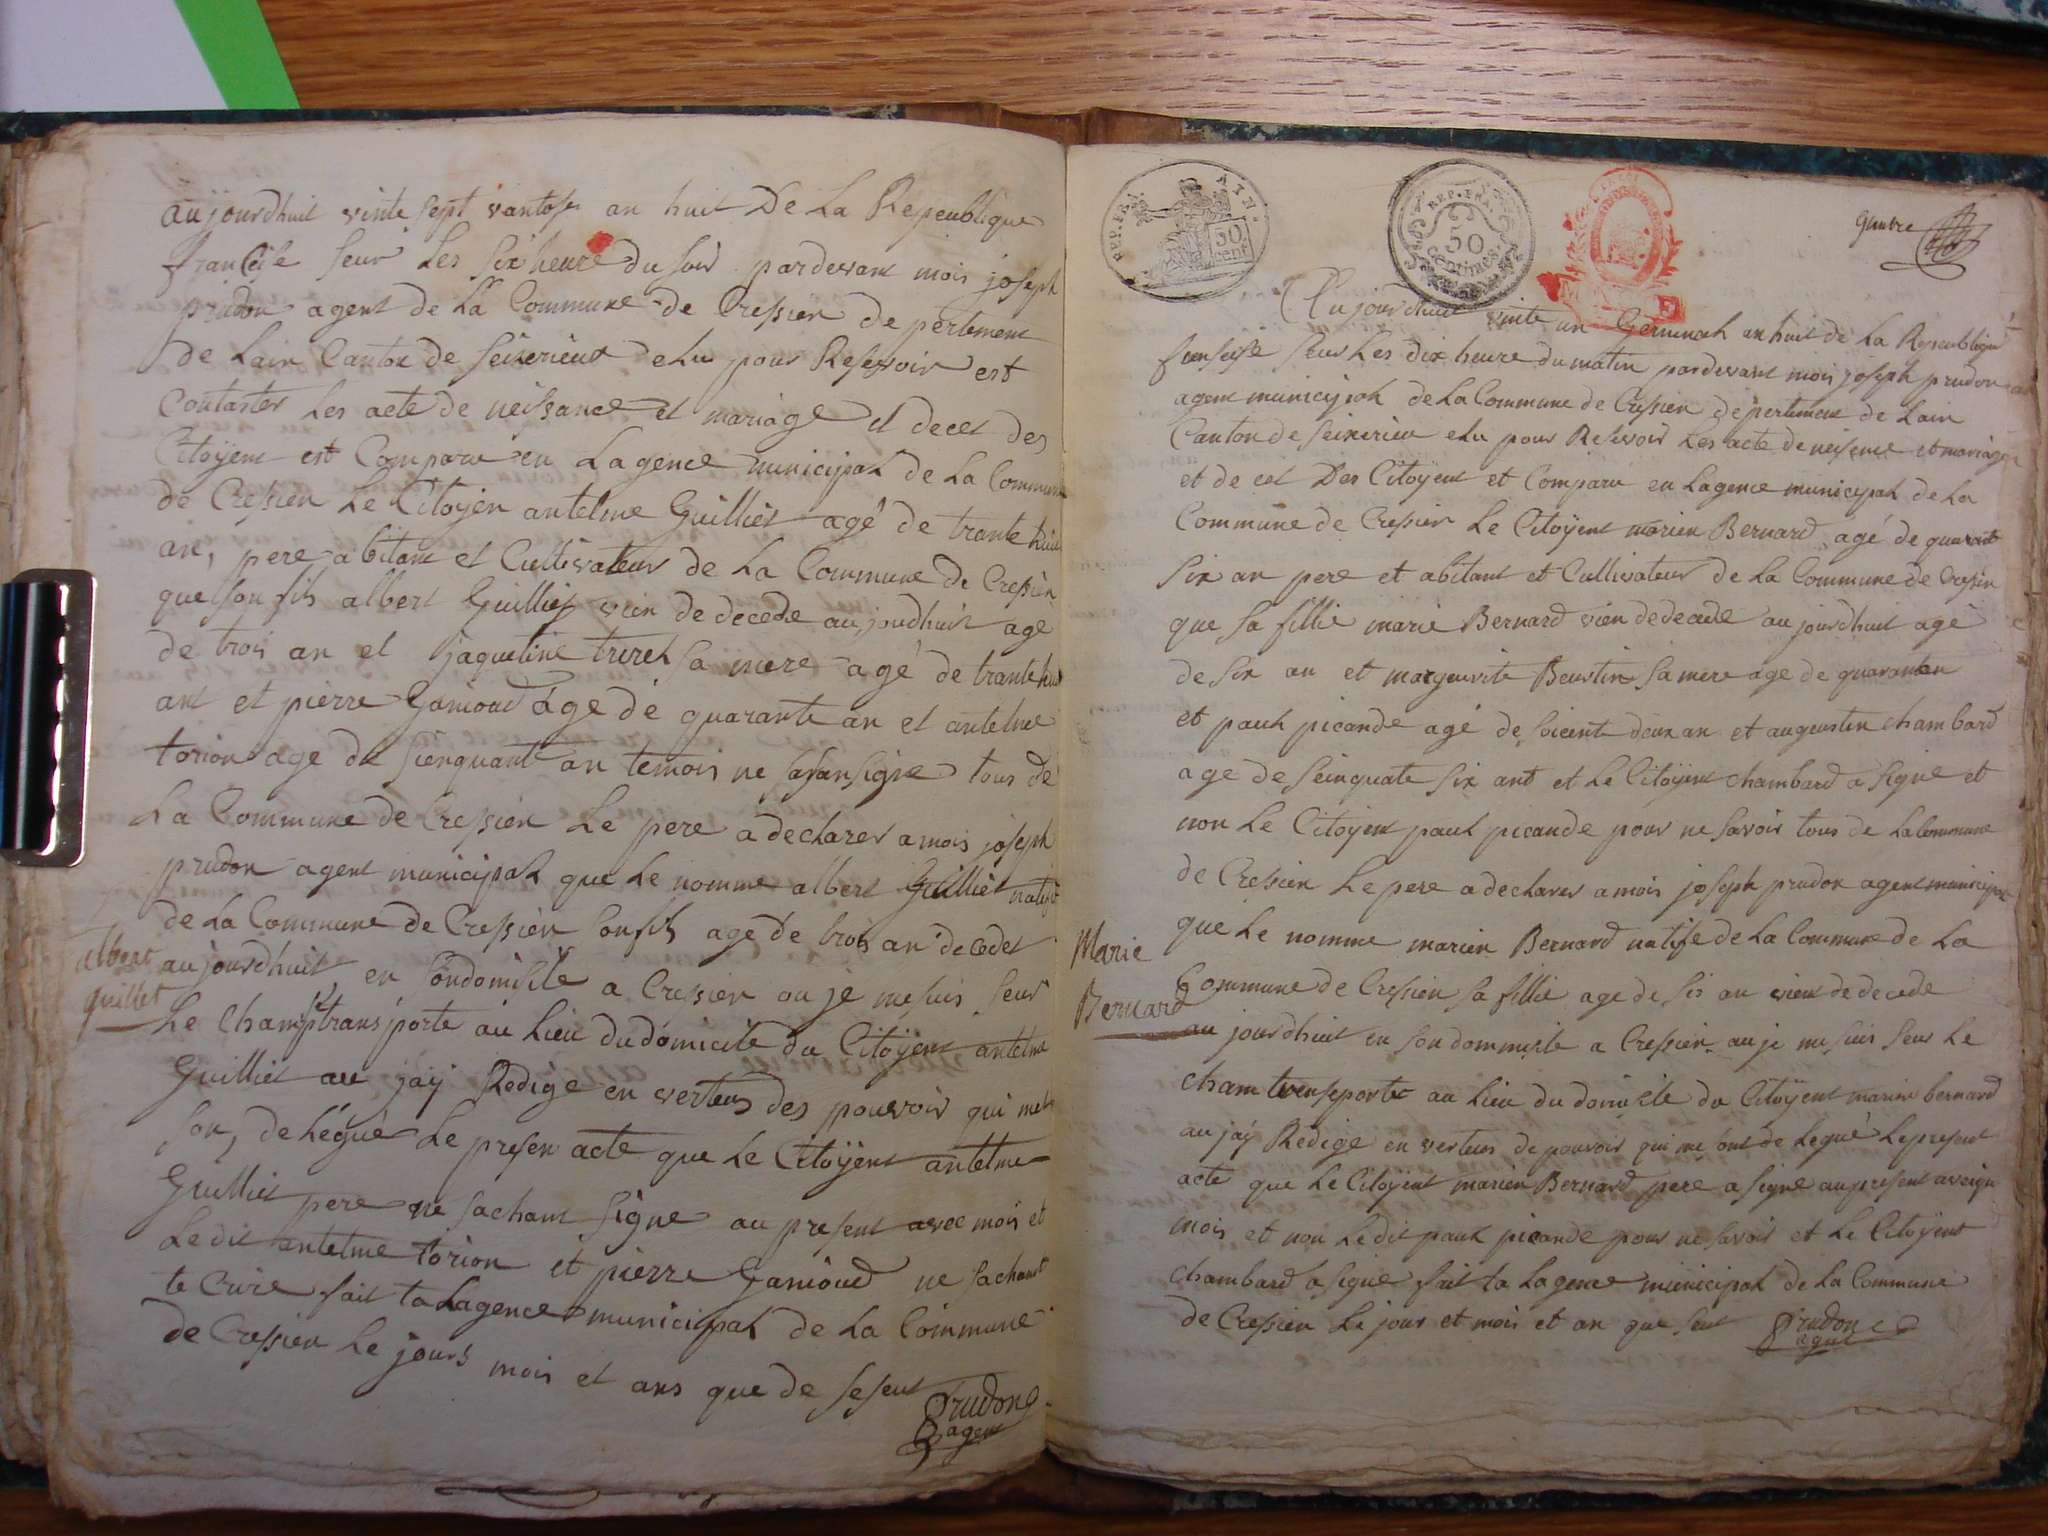 aujourdhuit vinte sept vantose an huit De La Repeublique
francèse seur Les six heure du soir pardevant mois joseph
prudon agent de La Commune de Cressien depertement
de Lain Canton de seixerieux elu pour Resesvoir est
Contaster Les acte de neissance et mariage et decet des
Citoÿent est Comparu en Lagence municipal de La Commune
de Cressien Le Citoÿen antelme Guilliet agé de trante huit
an, pere abitant et Cultivateur de La Commune de Cressien
que son fils albert Guilliet vien de decede aujourdhuit age
de trois an et jaqueline sa mere agé de trante huit
ant et pierre Ganioud agé dé quarante an et antelme
torion age de sienquante an temois ne sasan signe tous dé
La Commune de Cressien Le pere a declarer a mois joseph
prudon agent municipal que Le nomme albert Guilliet natife
de La Commune de Cressien son fils age de trois an decedet
albert
guillet
aujourdhuit en sondomisile a Cressien ou je mesuis seur
Le champ transporte au Lieu du domicile du Citoÿent antelme
Guilliet au jaÿ Redige en verteus des pouvoir qui me
son, delégué Le presen acte que Le Citoÿent antelme
Guilliet pere ne sachant signe au present avec mois et
Ledit antelme torion et pierre Ganioud ne sachant
te Crire fait ta Lagence municipal de La Commune
de Cressien Le jours mois et ans que de seseut
Prudon
agent
REP. FRA.
50
cent.
REP. FRA.
50
centimes
Aujourdhuit vinte un Germinal an huit de La Repeublique
fransese seur Les dix heure du matin pardevant mois joseph prudon
agent municipal de La Commune de Cressien depertement de Lain
Canton de seixerieu elu pour Resevoir Les acte de neisence et mariage
et de cet Des Citoÿent et Comparu en Lagence municipal de La
Commune de Cressien Le Citoÿent marien Bernard agé de quarante
six an pere et abitant et Cultivateur de La Commune de Cresien
que sa fillie marie Bernard vien dedecede aujourdhuit agé
de six an et marguerite Beustin sa mere age de quarante an
et paul picande agé de soicente deux an et augeustin chambard
age de seinquate six ant et Le Citoÿent chambard a signe et
non Le Citoÿent paul picande pour ne savoir tous de La Commune
de Cressien Le pere a declarer a mois joseph prudon agent municipal
que Le nomme marien Bernard natife de La Commune de La
Marie
Bernard
Commune de Cressien sa fillie age de sis an vient de decede
au jourdhuit en son dommisile a Cressien au je me suis seur Le
cham trensporte au Lieu du domisile du Citoÿent marien bernard
au jaÿ Redige en verteus de pouvoir qui me ont de Legué Lepresent
acte que Le Citoÿent marien Bernard pere a signe aupresent
mois et non Ledit paul picande pour ne savoir et Le Citoÿent
chambard a signe fait ta Lagence municipal de La Commune
de Cressien Le jour et mois et an que seut
Prudon
agent